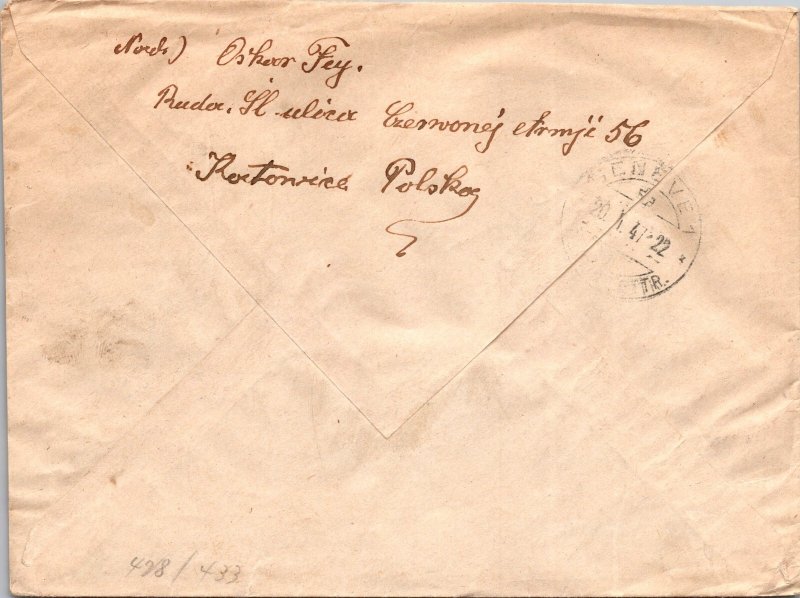 Nad.) Oskar Fey.
Ruda. Śl ulica Czerwonéj Armji 56
Katowice Polska
GENEVE 1
20. 47-22
TTR.
428/433